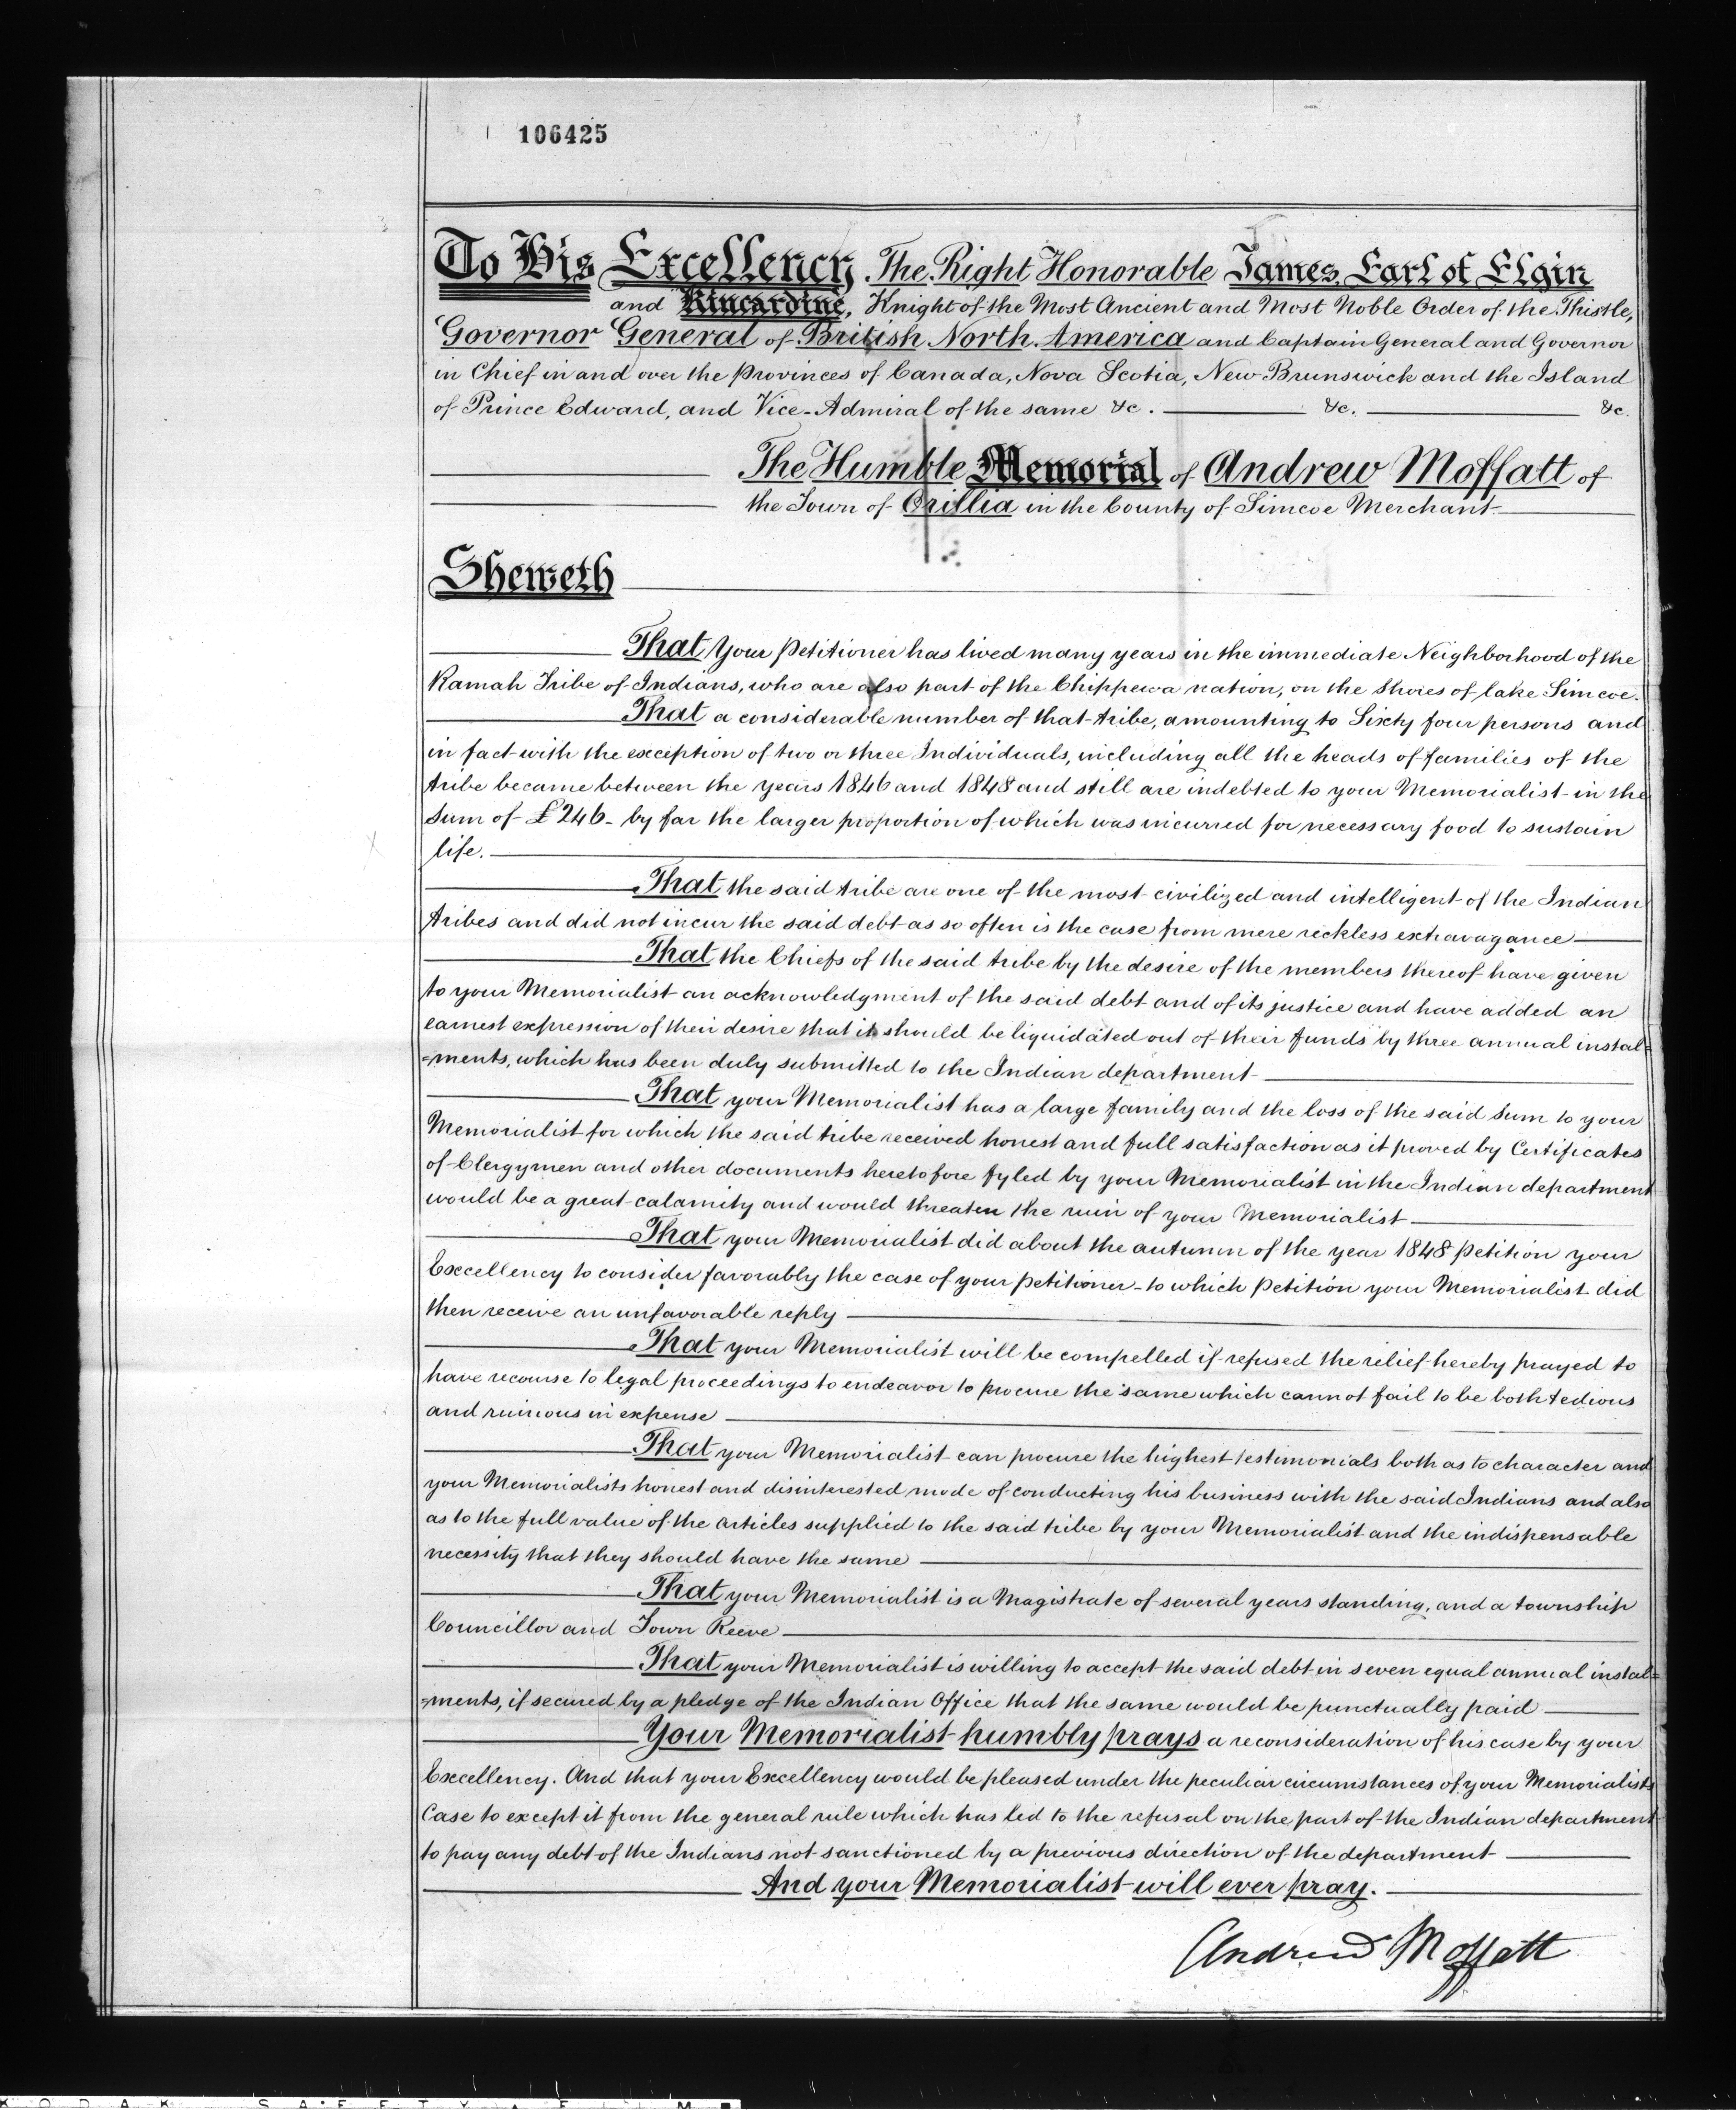 106425
To His Excellency, The Right Honorable James, Earl of Elgin
and Kincardine, Knight of the Most Ancient and Most Noble Order of the Thistle,
Governor General of British North America and Captain General and Governor
in Chief in and over the Provinces of Canada, Nova Scotia, New Brunswick and the Island
of Prince Edward, and Vice-Admiral of the same &c. &c. &c.
The Humble Memorial of Andrew Moffatt of
the Town of Orillia in the County of Simcoe Merchant
Sheweth
That Your Petitioner has lived many years in the immediate Neighborhood of the
Ramah Tribe of Indians, who are also part of the Chippewa nation, on the Shores of lake Simcoe.
That a considerable number of that tribe, amounting to Sixty four persons and
in fact with the exception of two or three Individuals, including all the heads of families of the
tribe became between the years 1846 and 1848 and still are indebted to your Memorialist in the
Sum of £246- by far the larger proportion of which was incurred for necessary food to sustain
life.
That the said tribe are one of the most civilized and intelligent of the Indian
tribes and did not incur the said debt as so often is the case from mere reckless extravagance
That the Chiefs of the said tribe by the desire of the members thereof have given
to your Memorialist an acknowledgment of the said debt and of its justice and have added an
earnest expression of their desire that it should be liquidated out of their funds by three annual instal=
=ments, which has been duly submitted to the Indian department
That your Memorialist has a large family and the loss of the said Sum to your
Memorialist for which the said tribe received honest and full satisfaction as it proved by Certificates
of Clergymen and other documents heretofore fyled by your Memorialist in the Indian department
would be a great calamity and would threaten the ruin of your Memorialist
That your Memorialist did about the autumn of the year 1848 petition your
Excellency to consider favorably the case of your petitioner - to which Petition your Memorialist did
then receive an unfavorable reply
That your Memorialist will be compelled if refused the relief hereby prayed to
have recourse to legal proceedings to endeavor to procure the same which cannot fail to be both tedious
and ruinous in expense
That your Memorialist can procure the highest testimonials both as to character and
your Memorialists honest and disinterested mode of conducting his business with the said Indians and also
as to the full value of the articles supplied to the said tribe by your Memorialist and the indispensable
necessity that they should have the same
That your Memorialist is a Magistrate of several years standing, and a township
Councillor and Town Reeve
That your Memorialist is willing to accept the said debt in seven equal annual instal=
=ments, if secured by a pledge of the Indian Office that the same would be punctually paid
Your Memorialist humbly prays a reconsideration of his case by your
Excellency. And that your Excellency would be pleased under the peculiar circumstances of your Memorialists
Case to except it from the general rule which has led to the refusal on the part of the Indian department
to pay any debt of the Indians not sanctioned by a previous direction of the department
And your Memorialist will ever pray.
Andrew Moffatt
KODAK SAFETY FILM